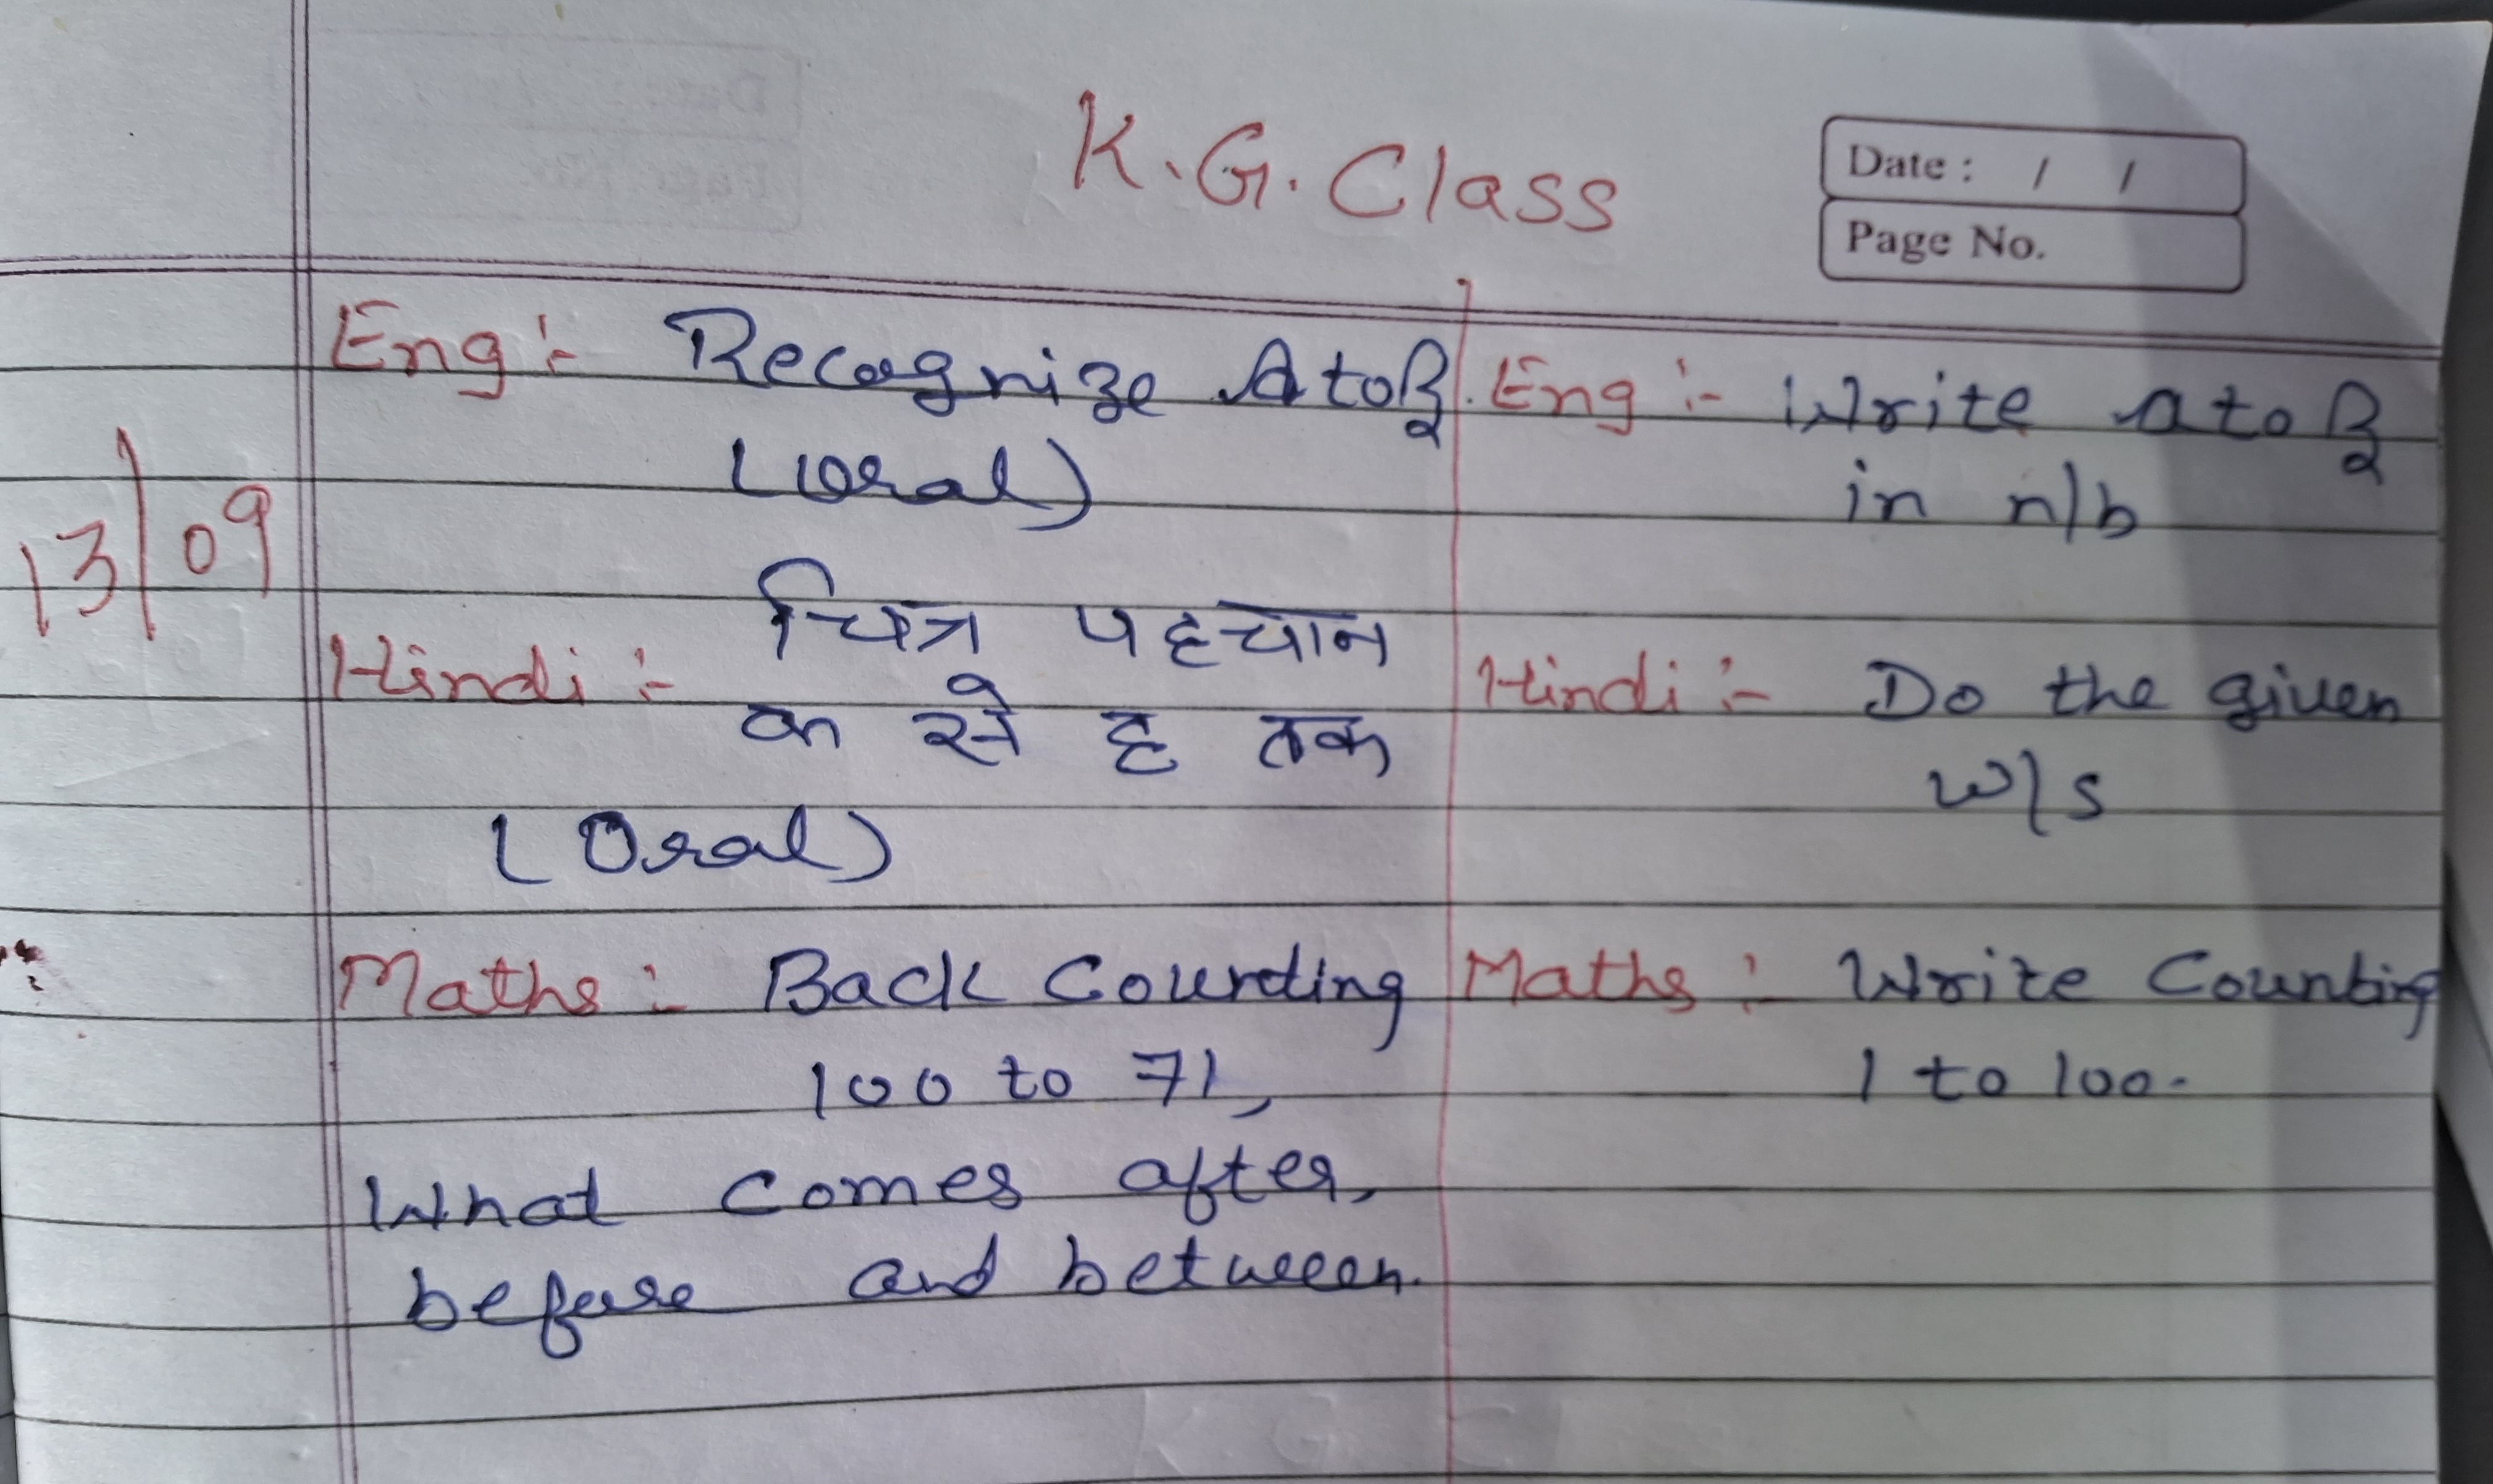 K.G. Class
Date : / /
Page No.
13/09
Eng :- Recognize A to Z
(Oral)
Hindi :- चित्र पहचान
क से ह तक
(Oral)
Maths :- Back Counting
100 to 71,
What comes after,
before and between.
Eng :- Write A to Z
in n/b
Hindi :- Do the given
w/s
Maths : Write Counting
1 to 100.